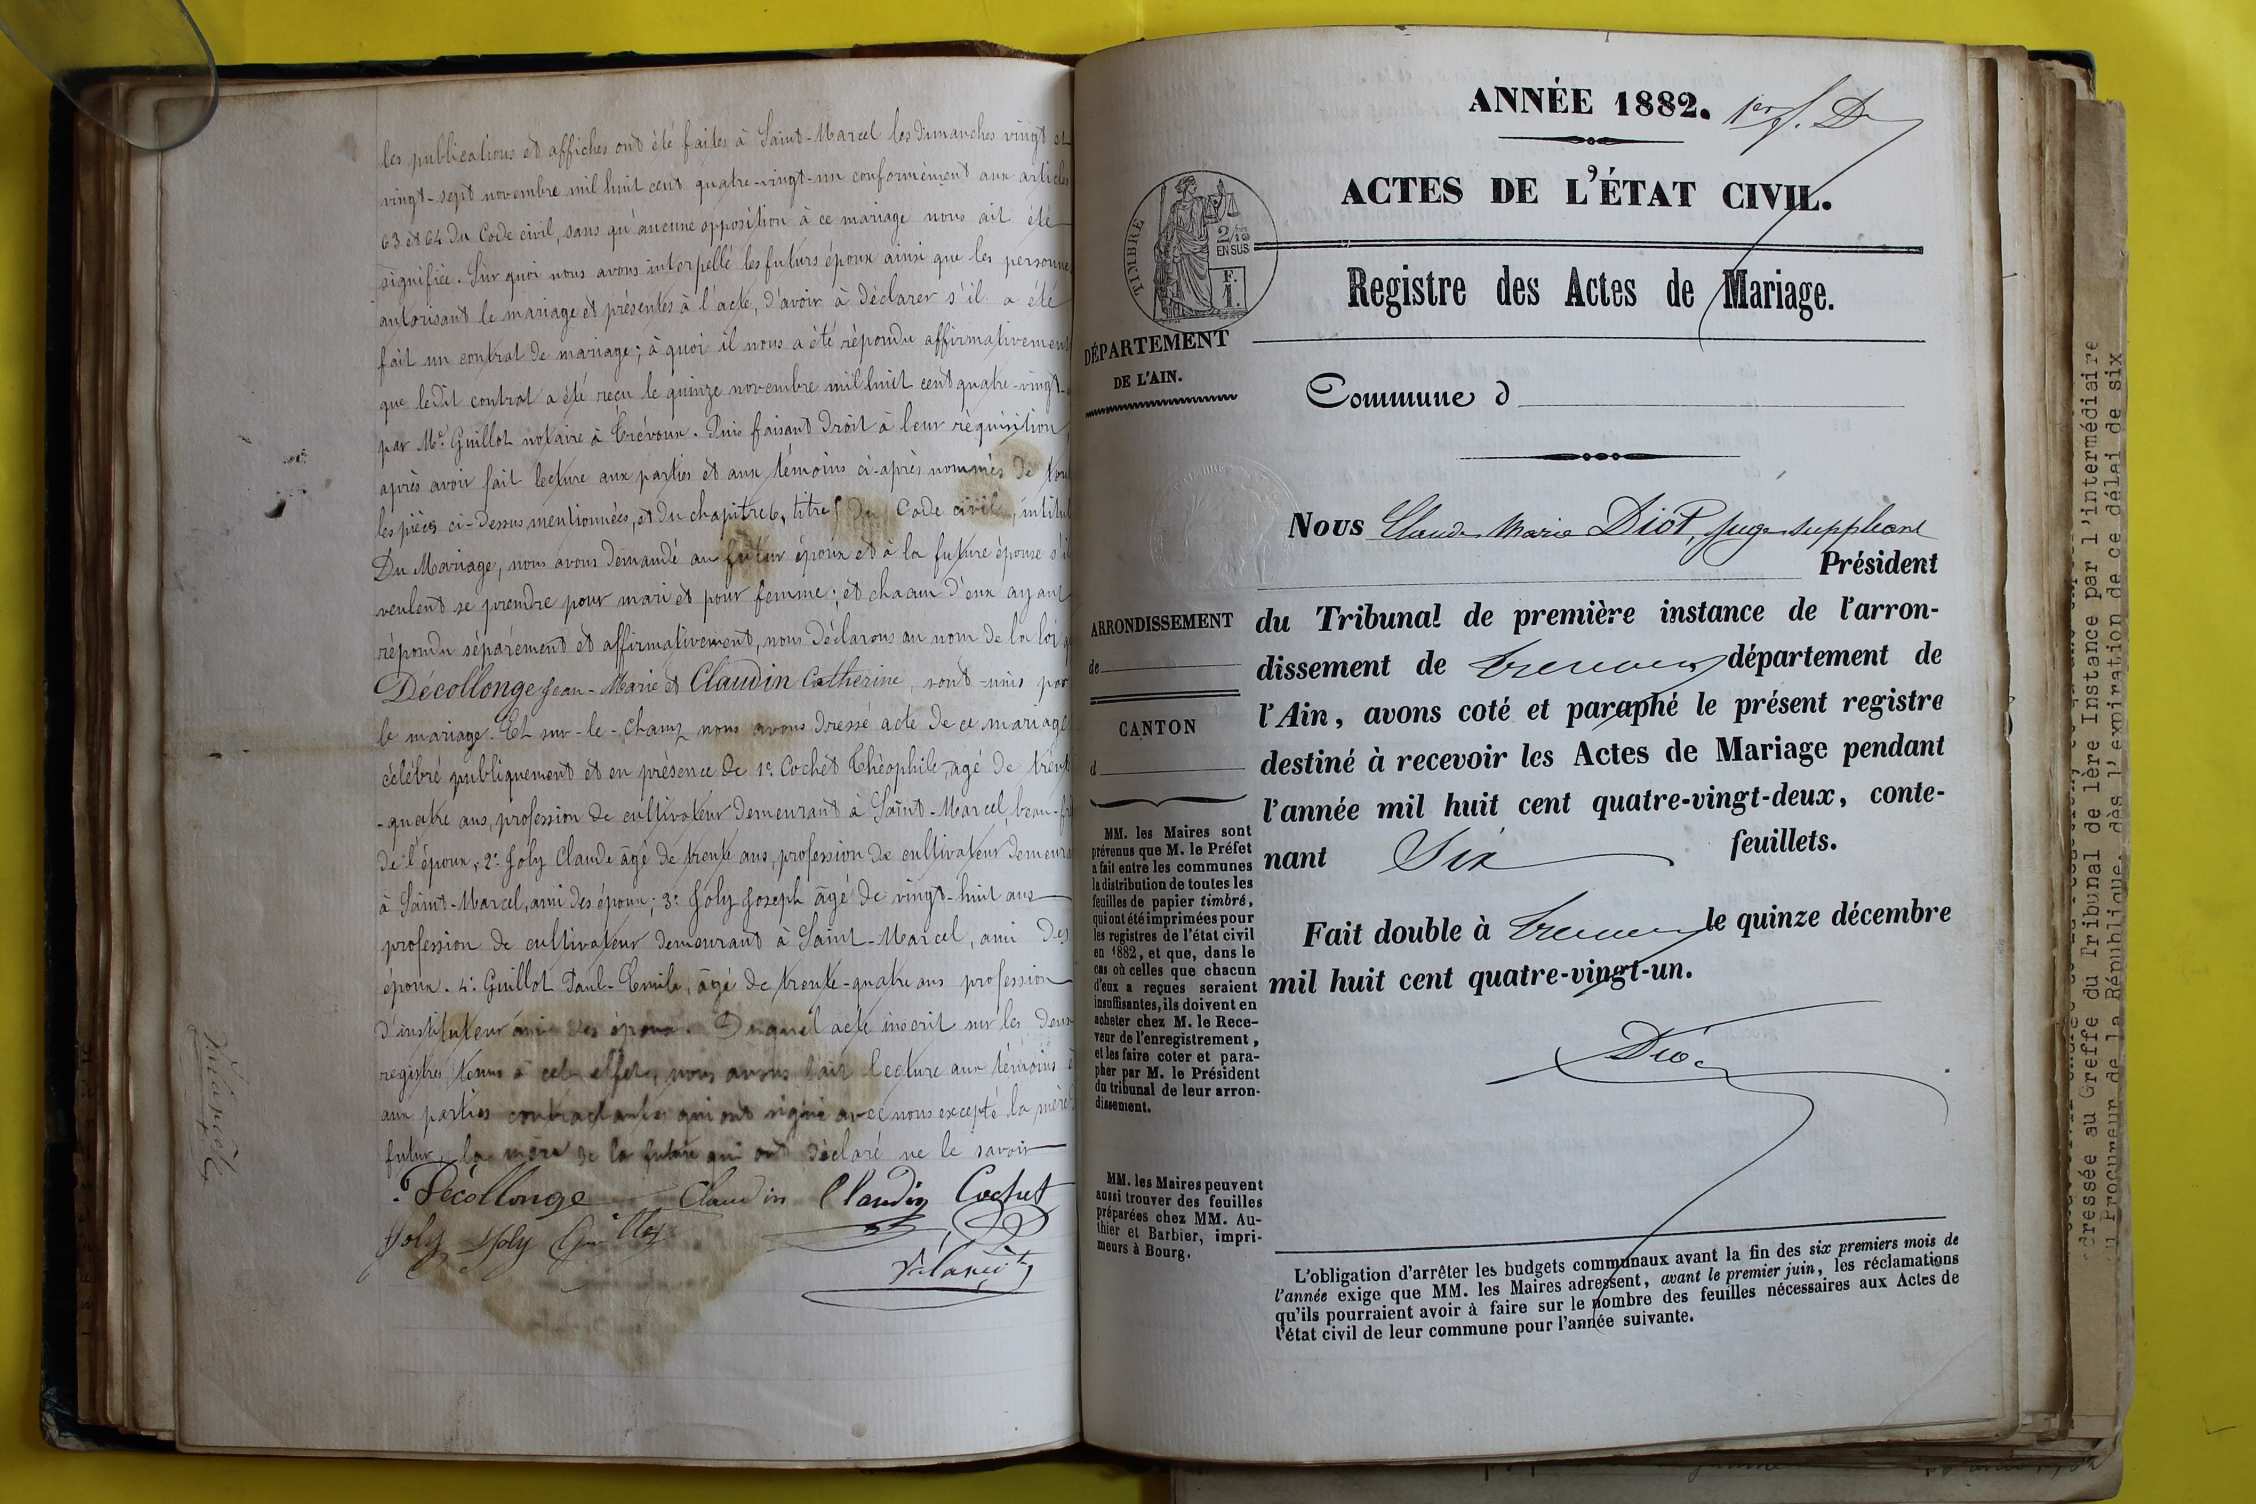 les publications et affiches ont été faites à Saint-Marcel les dimanches vingt et
vingt-sept novembre mil huit cent quatre-vingt-un conformément aux articles
63 et 64 du Code civil, sans qu'aucune opposition à ce mariage nous ait été
signifiée. Sur quoi nous avons interpellé les futurs époux ainsi que les personnes
autorisant le mariage et présentes à l'acte, d'avoir à déclarer s'il a été
fait un contrat de mariage; à quoi il nous a été répondu affirmativement
que ledit contrat a été reçu le quinze novembre mil huit cent quatre-vingt-
par Me. Guillot notaire à Trévoux. Puis faisant droit à leur réquisition,
après avoir fait lecture aux parties et aux témoins ci-après nommés de
les pièces ci-dessus mentionnées, et du chapitre 6, titre 5 du Code civil, intitul
Du Mariage, nous avons demandé au futur époux et à la future épouse s'il
veulent se prendre pour mari et pour femme; et chacun d'eux ayant
répondu séparément et affirmativement, nous déclarons au nom de la loi q
Décollonge Jean-Marie et Claudin Catherine, sont unis par
le mariage. Et sur-le-champ nous avons dressé acte de ce mariage
célébré publiquement et en présence de 1o. Cochet Théophile, âgé de trente
-quatre ans, profession de cultivateur demeurant à Saint-Marcel, beau-fr
de l'époux, 2o. Joly Claude âgé de trente ans, profession de cultivateur demeura
à Saint-Marcel, ami des époux; 3o. Joly Joseph âgé de vingt-huit ans
profession de cultivateur demeurant à Saint-Marcel, ami des
époux. 4o. Guillot Paul-Emile, âgé de trente-quatre ans profession
d'instituteur ami des époux. Duquel acte inscrit sur les deux
registres tenus à cet effet, nous avons fait lecture aux témoins &
aux parties contractantes qui ont signé avec nous excepté la mère
futur, la mère de la future qui ont déclaré ne le savoir
Décollonge Claudin Claudin Cochet
Joly Joly Guillot
ANNÉE 1882. 1er f. D
ACTES DE L'ÉTAT CIVIL.
TIMBRE
2/10 EN SUS
F.
1.
Registre des Actes de Mariage.
DÉPARTEMENT
DE L'AIN.
Commune d
Nous Claude Marie Diot, juge suppléant
Président
ARRONDISSEMENT
de
CANTON
d
du Tribunal de première instance de l'arron-
dissement de Trévoux département de
l'Ain, avons coté et paraphé le présent registre
destiné à recevoir les Actes de Mariage pendant
l'année mil huit cent quatre-vingt-deux, conte-
nant Six feuillets.
Fait double à Trévoux le quinze décembre
mil huit cent quatre-vingt-un.
Diot
MM. les Maires sont
prévenus que M. le Préfet
a fait entre les communes
la distribution de toutes les
feuilles de papier timbré,
qui ont été imprimées pour
les registres de l'état civil
en 1882, et que, dans le
cas où celles que chacun
d'eux a reçues seraient
insuffisantes, ils doivent en
acheter chez M. le Rece-
veur de l'enregistrement,
et les faire coter et para-
pher par M. le Président
du tribunal de leur arron-
dissement.
MM. les Maires peuvent
aussi trouver des feuilles
préparées chez MM. Au-
thier et Barbier, impri-
meurs à Bourg.
L'obligation d'arrêter les budgets communaux avant la fin des six premiers mois de
l'année exige que MM. les Maires adressent, avant le premier juin, les réclamations
qu'ils pourraient avoir à faire sur le nombre des feuilles nécessaires aux Actes de
l'état civil de leur commune pour l'année suivante.
dressée au Greffe du Tribunal de 1ère Instance par l'intermédiaire
du Procureur de la République, dès l'expiration de ce délai de six